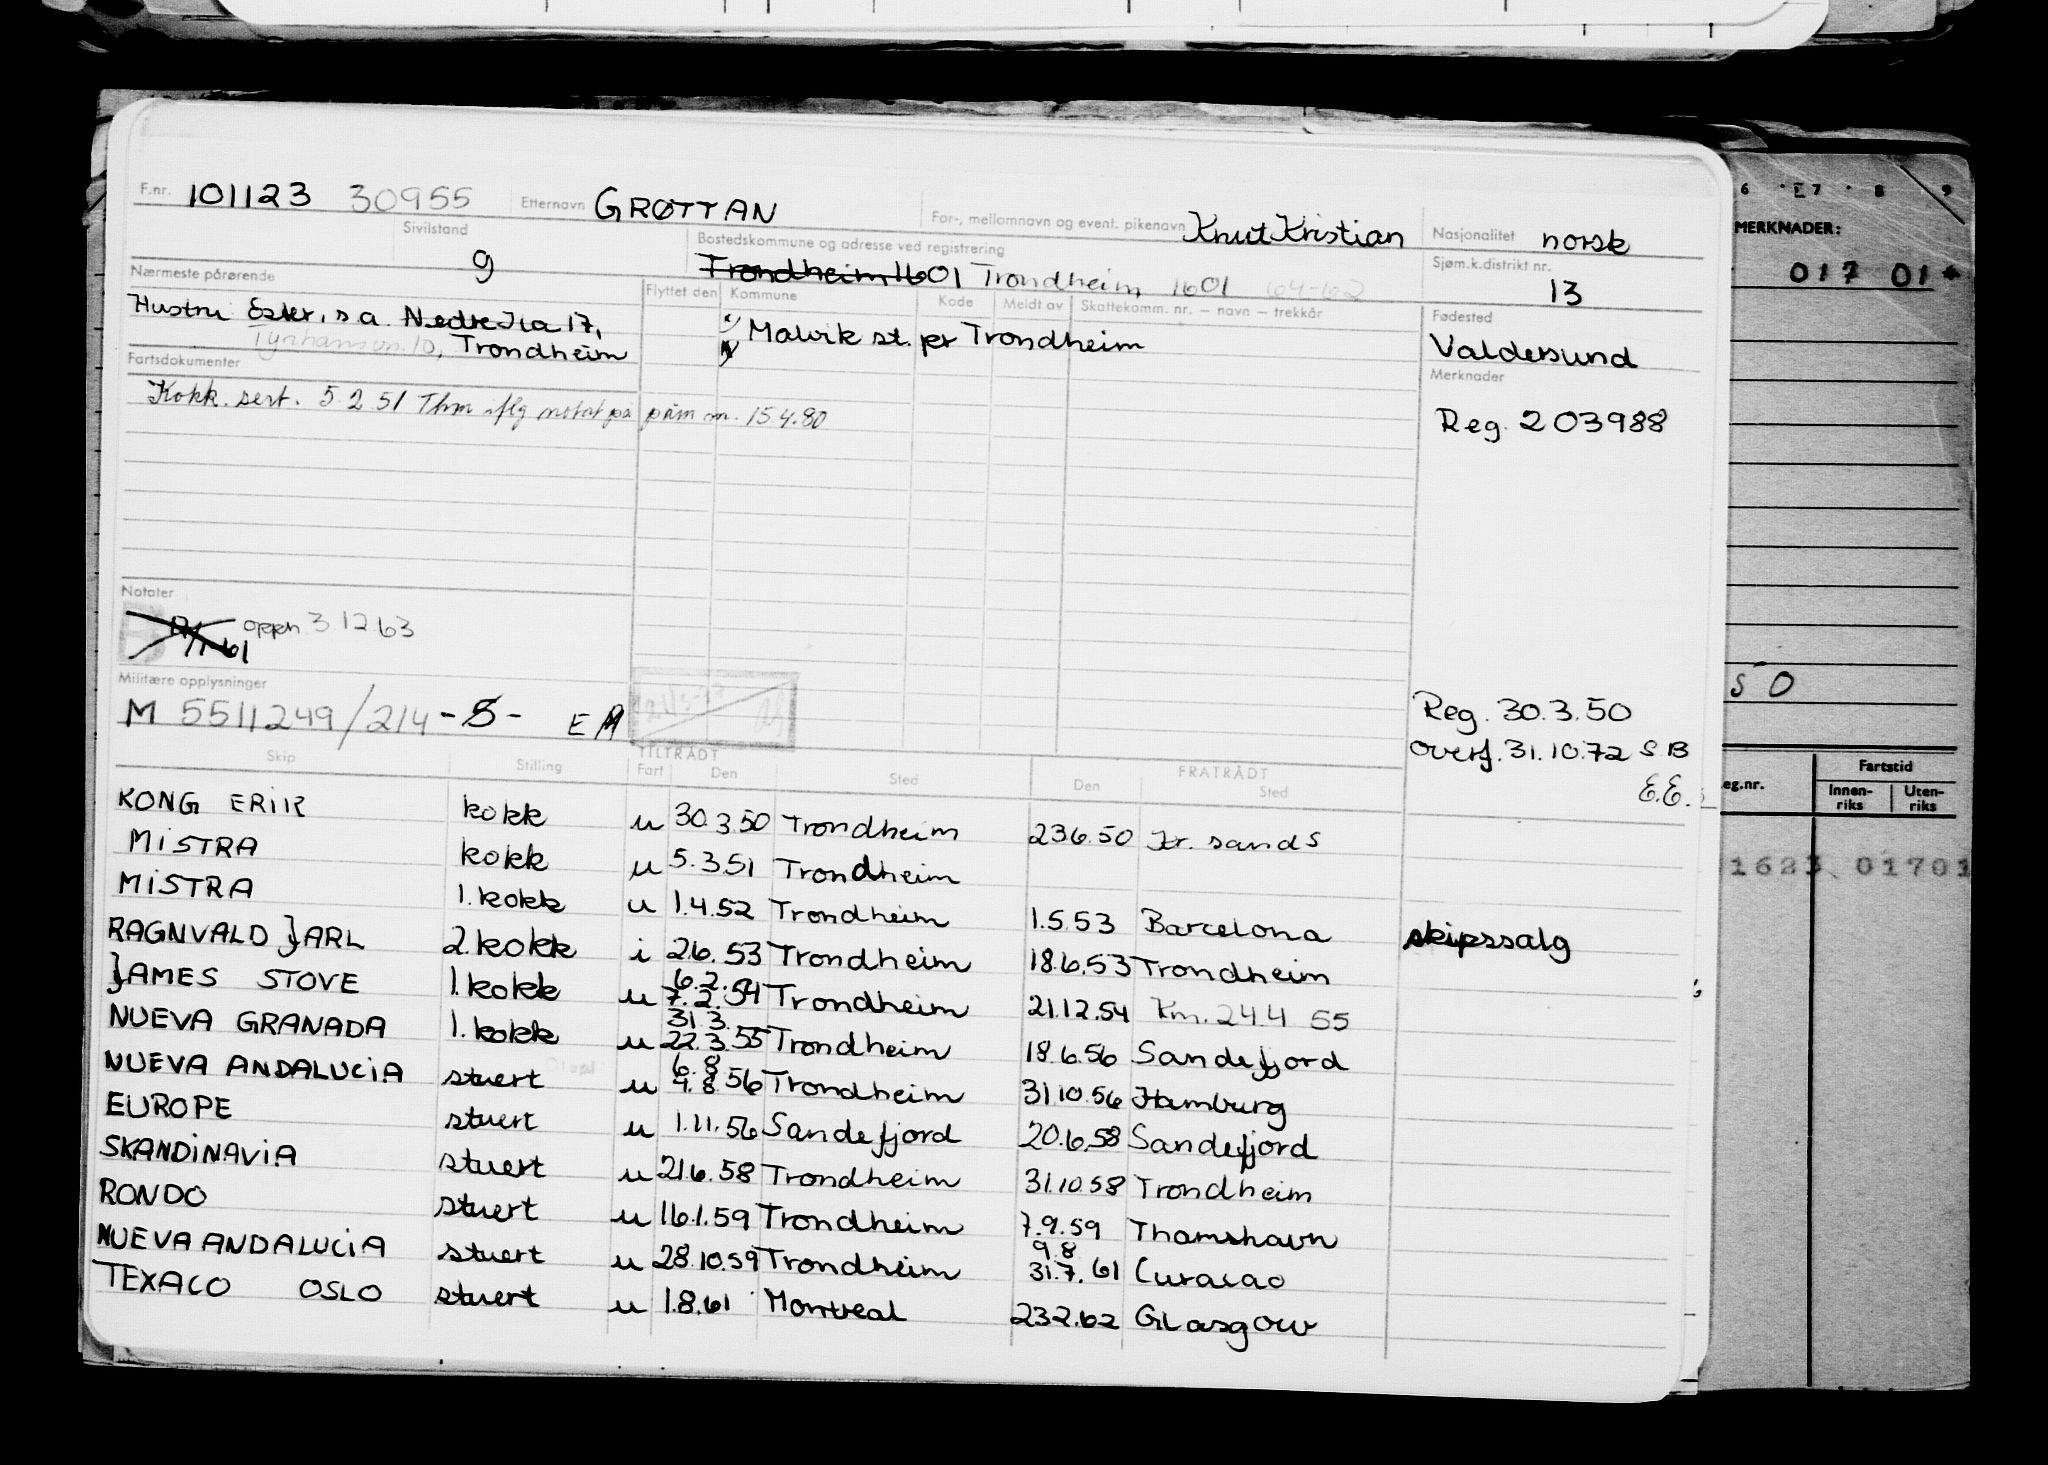 F.nr. 101123 30955 Etternavn GRØTTAN For-, mellomnavn og event. pikenavn Knut Kristian Nasjonalitet norsk
Sivilstand g Bostedskommune og adresse ved registrering Trondheim 1601 Trondheim 1601 64-62 Sjøm.k.distrikt nr. 13
Nærmeste pårørende Flyttet den Kommune Kode Meldt av Skattekomm. nr. — navn — trekkår Fødested
Hustru Ester, s.a. Nedre Ila 17, Malvik st. pr Trondheim Valdersund
10, Trondheim
Fartsdokumenter Merknader
Kokk. sert. 5.2.51 Thm iflg notat på 15.4.80 Reg. 203988
Notater
oppn 3.12.63
Militære opplysninger
M 5511249/214-S- E Reg. 30.3.50
Overf. 31.10.72 S B
E.E.
Skip Stilling TILTRÅDT Fart Den Sted FRATRÅDT Den Sted
KONG ERIK kokk u 30.3.50 Trondheim 23.6.50 Kr. sand S
MISTRA kokk u 5.3.51 Trondheim
MISTRA 1. kokk u 1.4.52 Trondheim 1.5.53 Barcelona skipssalg
RAGNVALD JARL 2. kokk i 2.6.53 Trondheim 18.6.53 Trondheim
JAMES STOVE 1. kokk u 6.2. 7.2.54 Trondheim 21.12.54 Km. 24.4 55
NUEVA GRANADA 1. kokk u 31.3. 22.3.55 Trondheim 18.6.56 Sandefjord
NUEVA ANDALUCIA stuert u 6.8 9.8.56 Trondheim 31.10.56 Hamburg
EUROPE stuert u 1.11.56 Sandefjord 20.6.58 Sandefjord
SKANDINAVIA stuert u 21.6.58 Trondheim 31.10.58 Trondheim
RONDO stuert u 16.1.59 Trondheim 7.9.59 Thamshavn
NUEVA ANDALUCIA stuert u 28.10.59 Trondheim 9.8 31.7.61 Curacao
TEXACO OSLO stuert u 1.8.61 Montreal 23.2.62 Glasgow
6 7 8 9
MERKNADER:
017 01
50
eg.nr. Fartstid
Innen-riks Uten-riks
1623 01701